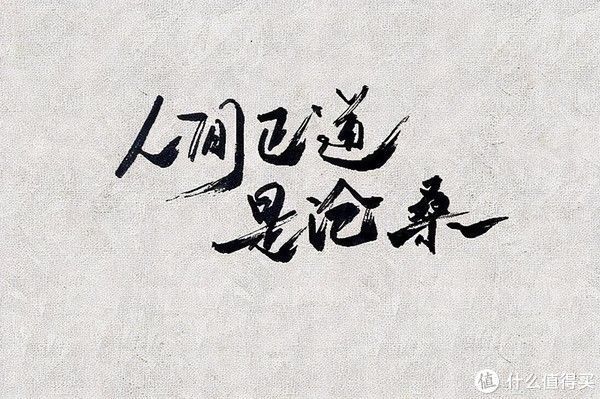 人间已道
是沧桑
值 什么值得买